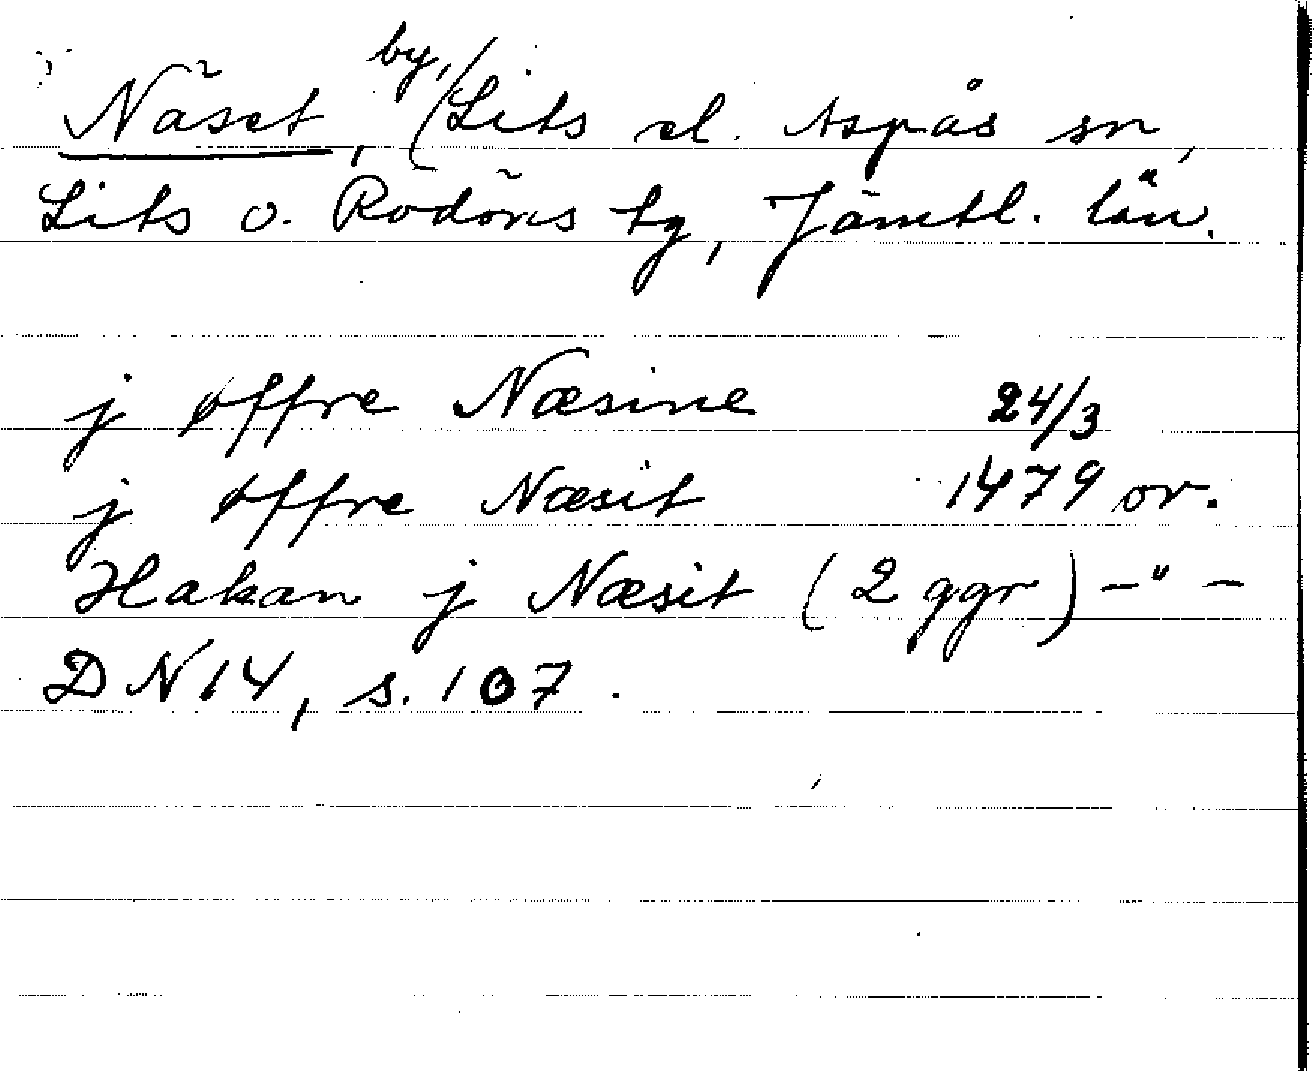 Näset, by, (Lits el. Aspås sn,
Lits o. Rödöns tg, Jämtl. län.
j øffre Næsine 24/3
j øffre Næsit 1479 or.
Hakan j Næsit (2 ggr) -"-
DN 14, s. 107.